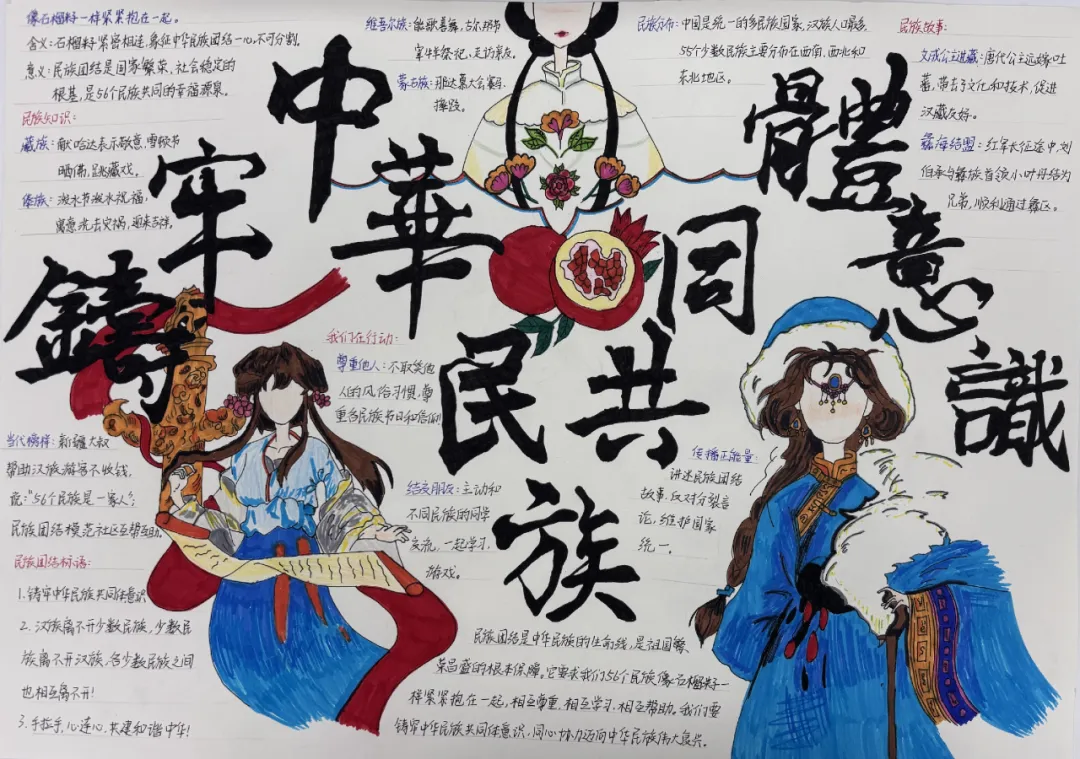 鑄牢中華民族共同體意識
像石榴籽一样紧紧抱在一起。
含义:石榴籽紧密相连,象征中华民族团结一心,不可分割。
意义:民族团结是国家繁荣、社会稳定的
根基,是56个民族共同的幸福源泉。
民族知识:
藏族:献哈达表示敬意,雪顿节
晒佛,跳藏戏。
傣族:泼水节泼水祝福,
寓意洗去灾祸,迎来吉祥。
维吾尔族:能歌善舞,古尔邦节
宰牛羊祭祀、走访亲友。
蒙古族:那达慕大会赛马、
摔跤。
民族分布:中国是统一的多民族国家,汉族人口最多,
55个少数民族主要分布在西南、西北和
东北地区。
民族故事:
文成公主进藏:唐代公主远嫁吐
蕃,带去了文化和技术,促进
汉藏友好。
彝海结盟:红军长征途中,刘
伯承与彝族首领小叶丹结为
兄弟,顺利通过彝区。
我们在行动:
尊重他人:不取笑他
人的风俗习惯,尊
重各民族节日和信仰
结交朋友:主动和
不同民族的同学
交流,一起学习、
游戏。
传播正能量:
讲述民族团结
故事,反对分裂言
论,维护国家
统一。
当代榜样:新疆大叔
帮助汉族游客不收钱,
说:"56个民族是一家人";
民族团结模范社区互帮互助。
民族团结标语:
1.铸牢中华民族共同体意识
2.汉族离不开少数民族,少数民
族离不开汉族,各少数民族之间
也相互离不开!
3.手拉手,心连心,共建和谐中华!
民族团结是中华民族的生命线,是祖国繁
荣昌盛的根本保障。它要求我们56个民族像石榴籽一
样紧紧抱在一起,相互尊重、相互学习、相互帮助。我们要
铸牢中华民族共同体意识,同心协力迈向中华民族伟大复兴。